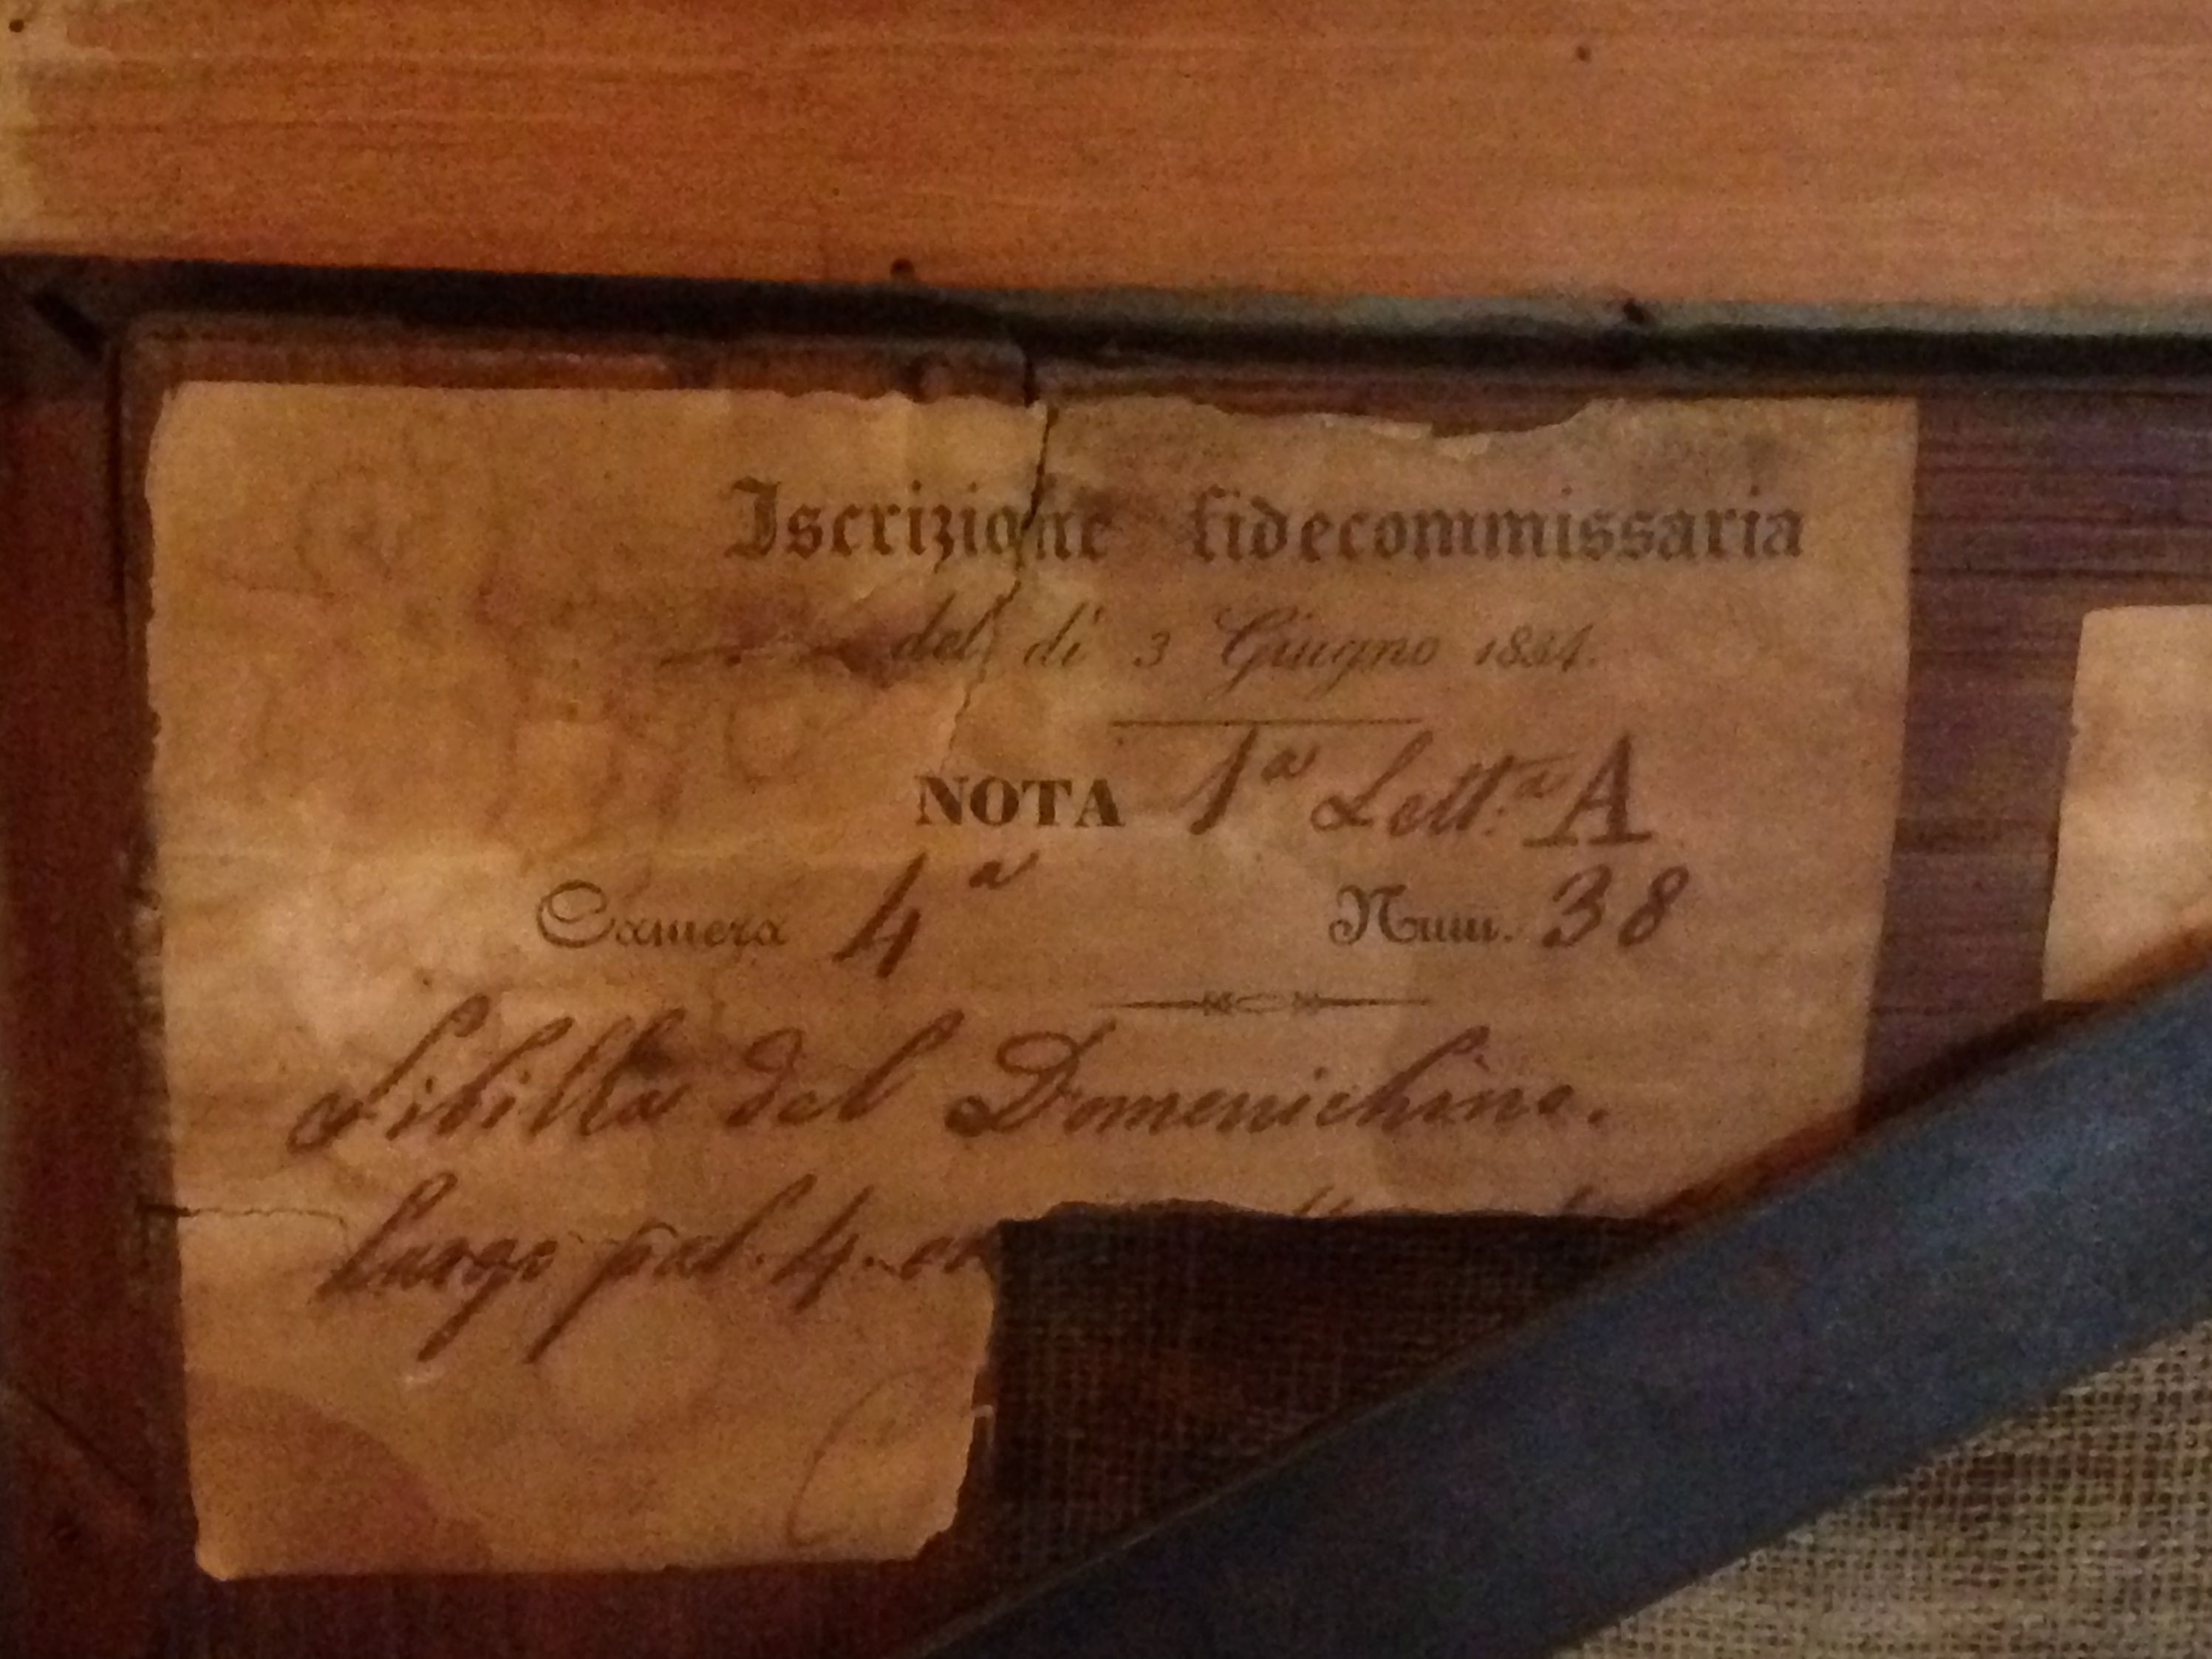 Iscrizione fidecommissaria
del di 3 Giugno 1834.
NOTA 1ª Lett.ª A
Camera 4ª Num. 38
Sibilla del Domenichino.
largo pal. 4.